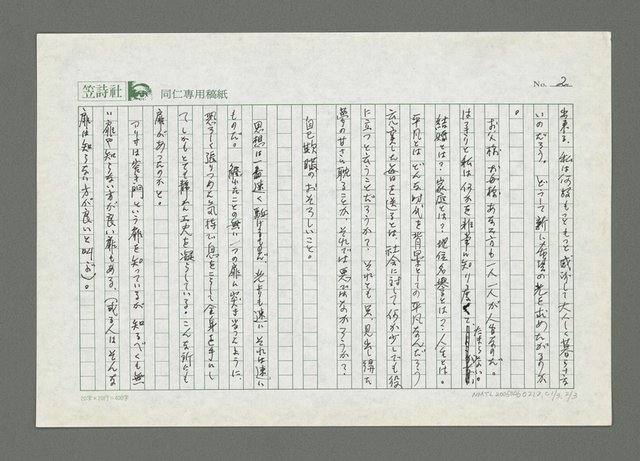 笠詩社 同仁專用稿紙
No. 2
出来る、私は何故もっともっと感謝して大人しく暮らさな
いのだろう。どうして新しい希望の光を求めたがるのか
。
お父様、お母様、あなた方も一人一人が人生なのだ。
はっきりと私は何かを
たまらない。
結婚とは？家庭とは？地位名誉とは？人生とは。
平凡とは、どんな時代を背景としての平凡なんだろう
忠実した毎日を送るとは 社会に対して何か少しでも役
に立つと云うことだろうか？ それとも 得た
夢の甘さに耽ることか、それでは悪ではなかろうか？
自己欺瞞のおそろしいこと。
思想は一番速く駆けるもの。光よりも速い それは速い
ものだ。 無い一つの扉に突き当ったように、
恐ろしく退りつめた気持で息をころして全身を耳にし
てしかもとても静かに工夫を凝らしている。こんな所にも
扉があったのかと。
アリサは窄き門という扉を知っているが 知るべくも無
い扉や知らない方が良い扉もある。（或る人は そんな
扉は知らない方が良いと叫ぶ）。
20字×20行=400字
NMTL20050060212,01/2, 2/3